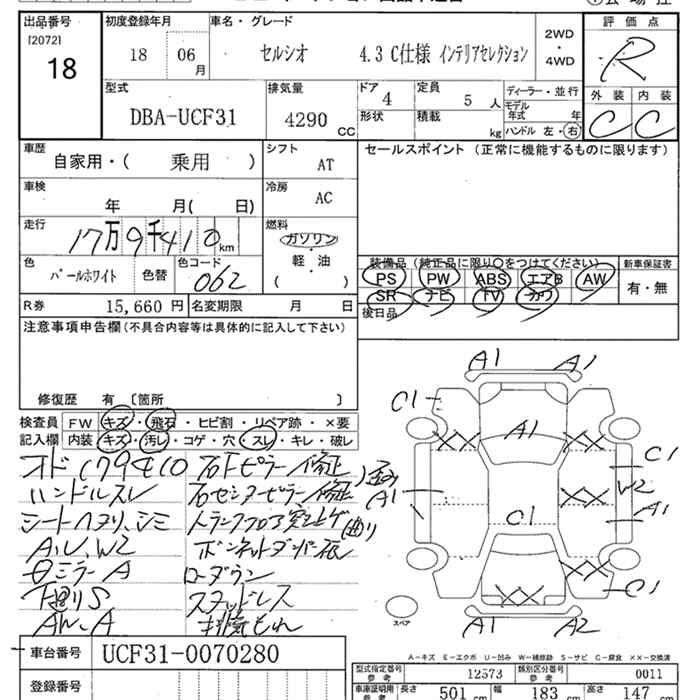 出品番号 初度登録年月 車名・グレード 2WD・4WD 評価点
[2072]
18 18 06月 セルシオ 4.3 C仕様 インテリアセレクション R
外装 内装
C C
型式 排気量 ドア 定員 ディーラー・並行
DBA-UCF31 4290 CC 4 5 人 モデル年式 年
形状 積載 kg ハンドル 左・右
車歴 シフト セールスポイント (正常に機能するものに限ります)
自家用・( 乗用 ) AT
車検 冷房
年 月( 日) AC
走行 燃料
17万9千410km ガソリン
軽・油
( )
色 パールホワイト 色替 色コード 062
装備品 (純正品に限り○をつけてください) 新車保証書
PS PW ABS エアB AW 有・無
SR ナビ TV カワ
R券 15,660 円 名変期限 月 日 後日品
注意事項申告欄 (不具合内容等は具体的に記入して下さい)
修復歴 有 〔箇所 〕
検査員 FW キズ・飛石・ヒビ割・リペア跡・×要
記入欄 内装 キズ・汚レ・コゲ・穴・スレ・キレ・破レ
オド179410 右Fピラー修正
ハンドルスレ 右センターピラー修正
シートヘタリ、シミ トランクフロア突上ゲ
A,U,W2
ミラーA ローダウン
下廻りS スタッドレス
AW、A 排気もれ
A1 A1
C1
A1
XX XX
C1
A1 XX W2
A1
C1
XX
XX C1
A1 A2
スペア
A-キズ E-エクボ U-凹み W-補修跡 S-サビ C-腐食 ××-交換済
車台番号 UCF31-0070280
登録番号
型式指定番号参考 12573 類別区分番号参考 0011
車庫証明用参考 長さ 501 cm 幅 183 cm 高さ 147 cm